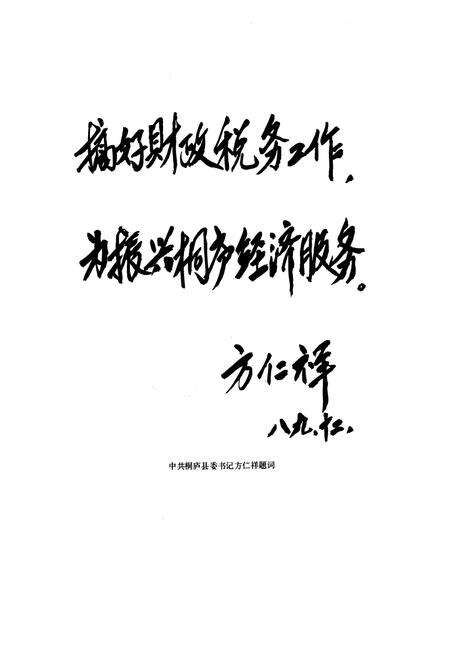 搞好财政税务工作，
为振兴桐庐经济服务。
方仁祥
八九、十二、
中共桐庐县委书记方仁祥题词